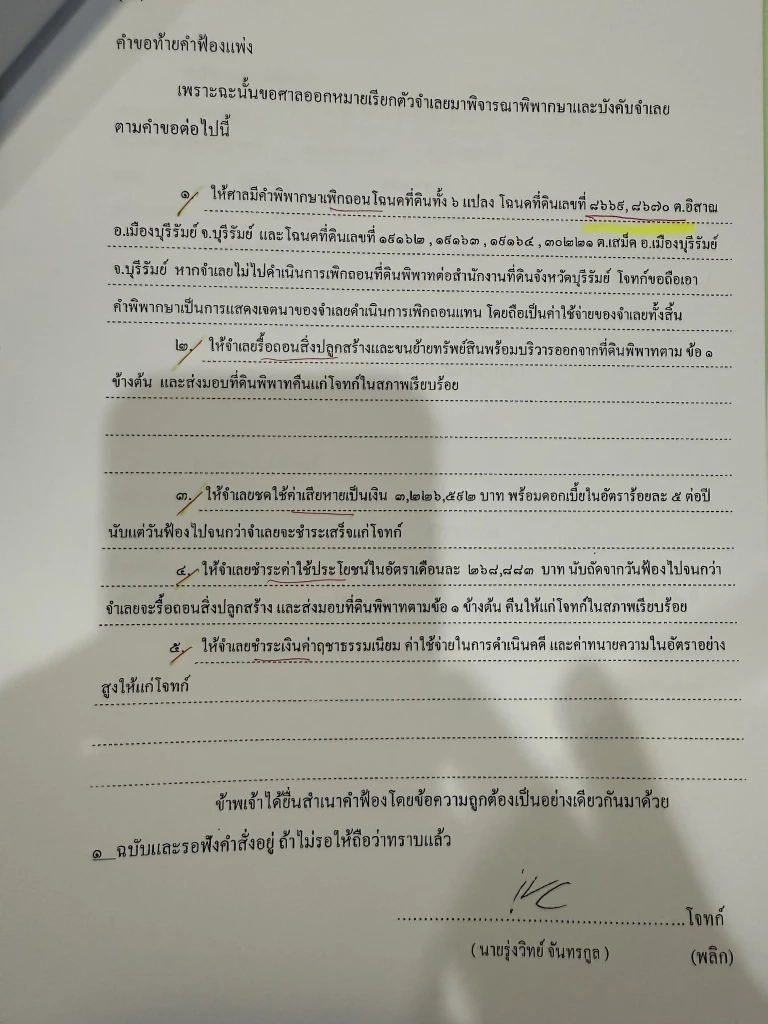 คำขอท้ายคำฟ้องแพ่ง
เพราะฉะนั้นขอศาลออกหมายเรียกตัวจำเลยมาพิจารณาพิพากษาและบังคับจำเลย
ตามคำขอต่อไปนี้
๑. ให้ศาลมีคำพิพากษาเพิกถอนโฉนดที่ดินทั้ง ๖ แปลง โฉนดที่ดินเลขที่ ๘๖๖๙, ๘๖๗๐ ต.อิสาณ
อ.เมืองบุรีรัมย์ จ.บุรีรัมย์ และโฉนดที่ดินเลขที่ ๑๙๑๖๒ , ๑๙๑๖๓ , ๑๙๑๖๔ , ๓๐๒๒๑ ต.เสม็ด อ.เมืองบุรีรัมย์
จ.บุรีรัมย์ หากจำเลยไม่ไปดำเนินการเพิกถอนที่ดินพิพาทต่อสำนักงานที่ดินจังหวัดบุรีรัมย์ โจทก์ขอถือเอา
คำพิพากษาเป็นการแสดงเจตนาของจำเลยดำเนินการเพิกถอนแทน โดยถือเป็นค่าใช้จ่ายของจำเลยทั้งสิ้น
๒. ให้จำเลยรื้อถอนสิ่งปลูกสร้างและขนย้ายทรัพย์สินพร้อมบริวารออกจากที่ดินพิพาทตาม ข้อ ๑
ข้างต้น และส่งมอบที่ดินพิพาทคืนแก่โจทก์ในสภาพเรียบร้อย
๓. ให้จำเลยชดใช้ค่าเสียหายเป็นเงิน ๓,๒๒๖,๕๙๒ บาท พร้อมดอกเบี้ยในอัตราร้อยละ ๕ ต่อปี
นับแต่วันฟ้องไปจนกว่าจำเลยจะชำระเสร็จแก่โจทก์
๔. ให้จำเลยชำระค่าใช้ประโยชน์ในอัตราเดือนละ ๒๖๘,๘๘๓ บาท นับถัดจากวันฟ้องไปจนกว่า
จำเลยจะรื้อถอนสิ่งปลูกสร้าง และส่งมอบที่ดินพิพาทตามข้อ ๑ ข้างต้น คืนให้แก่โจทก์ในสภาพเรียบร้อย
๕. ให้จำเลยชำระเงินค่าฤชาธรรมเนียม ค่าใช้จ่ายในการดำเนินคดี และค่าทนายความในอัตราอย่าง
สูงให้แก่โจทก์
ข้าพเจ้าได้ยื่นสำเนาคำฟ้องโดยข้อความถูกต้องเป็นอย่างเดียวกันมาด้วย
๑ ฉบับและรอฟังคำสั่งอยู่ ถ้าไม่รอให้ถือว่าทราบแล้ว
โจทก์
( นายรุ่งวิทย์ จันทรกูล ) (พลิก)